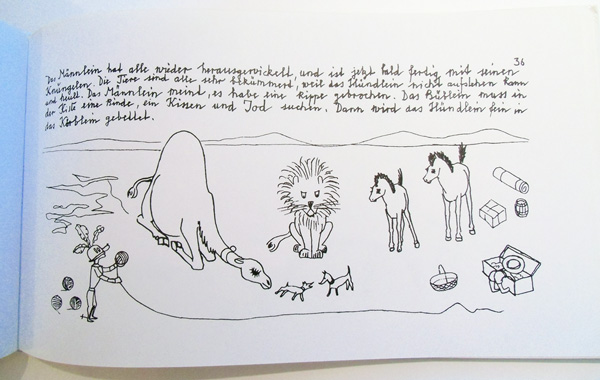 36
Das Männlein hat alle wieder herausgewickelt, und ist jetzt bald fertig mit seinen
Knüngelen. Die Tiere sind alle sehr bekümmert, weil das Hündlein nicht aufstehen kann
und heult. Das Männlein meint, es habe eine Rippe gebrochen. Das Büblein muss in
der Kiste eine Binde, ein Kissen und Jod suchen. Dann wird das Hündlein fein in
das Körblein gebettet.